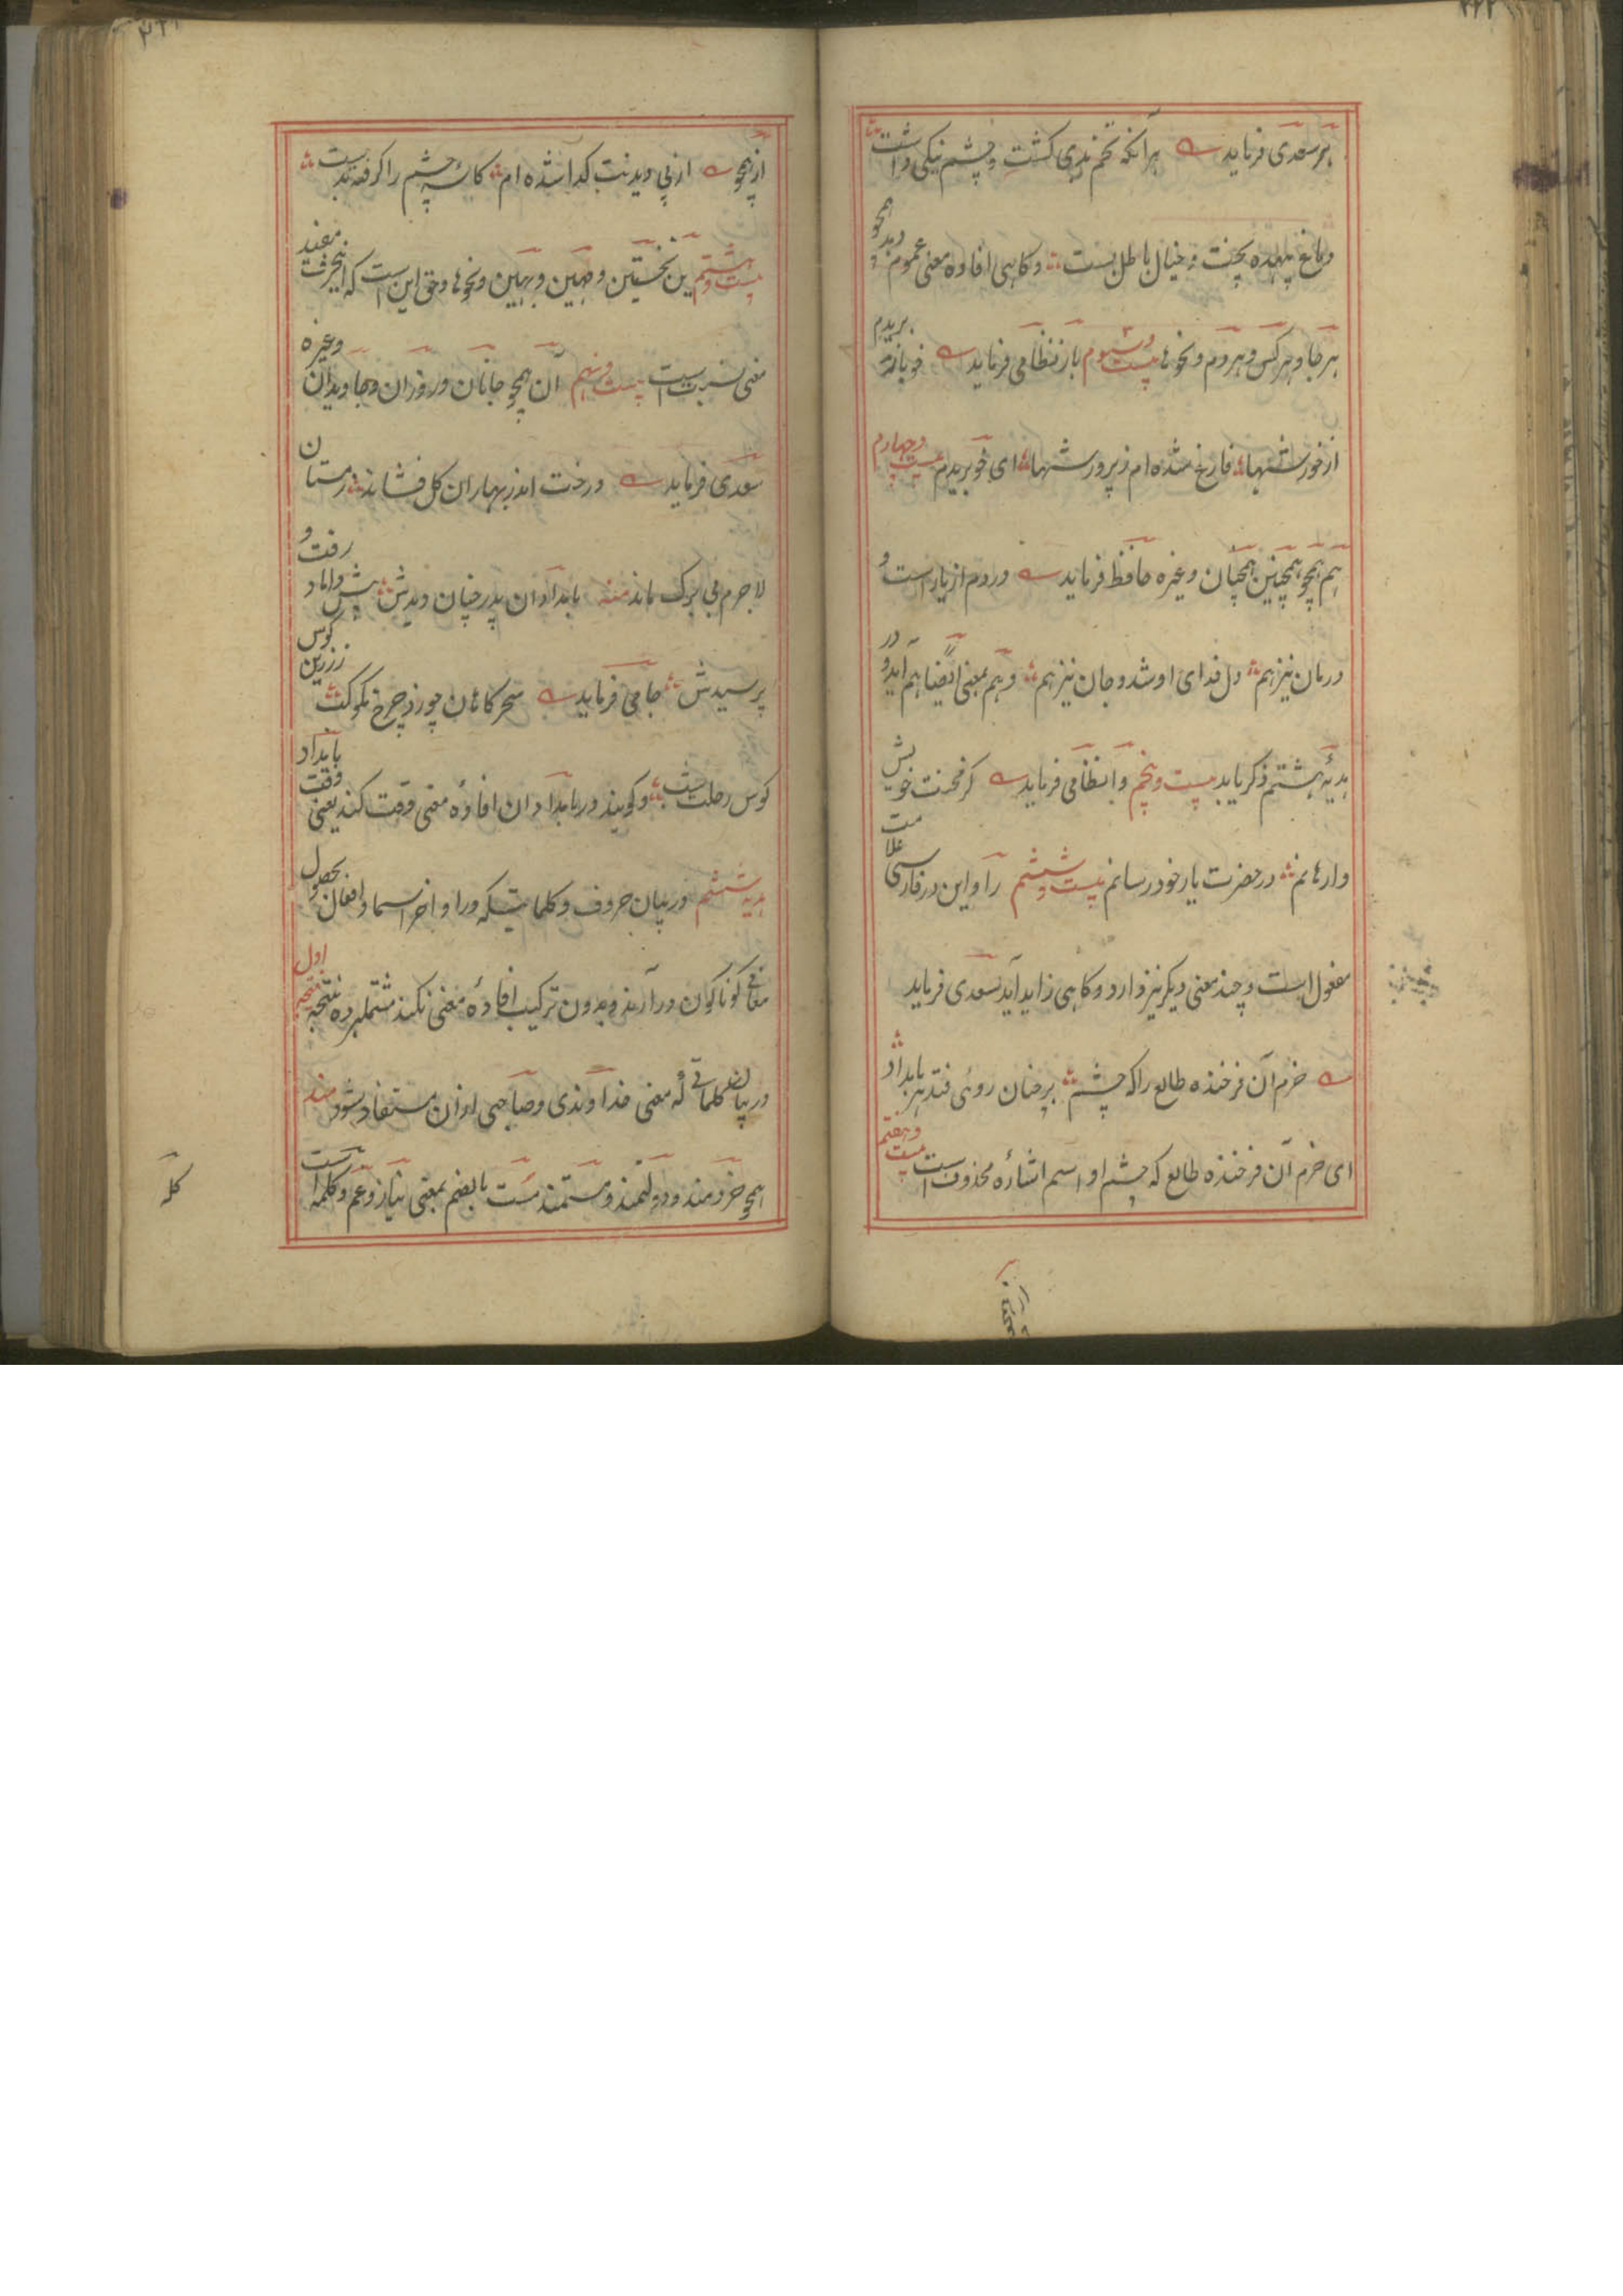 هر سعدی فرماید هر آنکه تخم بدی کشت و چشم نیکی داشت
دماغ بیهده پخت و خیال باطل بست و کاهی افاده معنی عموم دهد همچو
هر جا و هر کس و هر دم و نحوها بیست و سوم باز نظامی فرماید خو باز بریدم
از خورشها فارغ شده ام ز پرورشها ای خو بریدم بیست و چهارم
هم همچو همچنین همچنان و غیره حافظ فرماید دردم از یار است و
درمان نیز هم دل فدای او شد و جان نیز هم و هم بمعنی ایضا هم آید و در
هدیهٔ هشتم ذکر یابد بیست و پنجم وا نظامی فرماید کر محنت خویش
وارهانم در حضرت یار خود رسانم بیست و ششم را و این در فارسی علامت
مفعول است و چند معنی دیکر نیز دارد و کاهی زاید آید سعدی فرماید
خرم آن فرخنده طالع را که چشم بر چنان روی فتد هر بامداد
ای خرم آن فرخنده طالع که چشم او اسم اشاره محذوف است بیست و هفتم
۳۲۱
از همچو از پی دیدنت کدا شده ام کاسهٔ چشم را کرفته بدست
بیست و هشتم ین نخستین و مهین و بهین و نحوها و حق این است که اینحرف مفید
معنی نسبت است بیست و نهم آن همچو جانان و روزان و جاویدان و غیره
سعدی فرماید درخت اندر بهاران کل فشاند زمستان
لاجرم بی برک ماند منه بامدادان پدر چنان دیدش پیش داماد رفت و
پرسیدش جامی فرماید سحرکاهان چو زد چرخ مکوکب زرین کوس
کوس رحلت و کویند در بامدادان افادهٔ معنی وقت کند یعنی وقت بامداد
هدیه ششم در بیان حروف و کلماتیکه در اواخر اسما و افعال بحصول
معانی کوناکون در آرند و بدون ترکیب افادهٔ معنی نکند مشتملبرده نتیجه اول
در بیان کلماتی که معنی خداوندی و صاحبی ازان مستفاد بشود مند
همچو خردمند و دولتمند و مستمند مست بالضم بمعنی نیاز و غم و کلمه است
کله